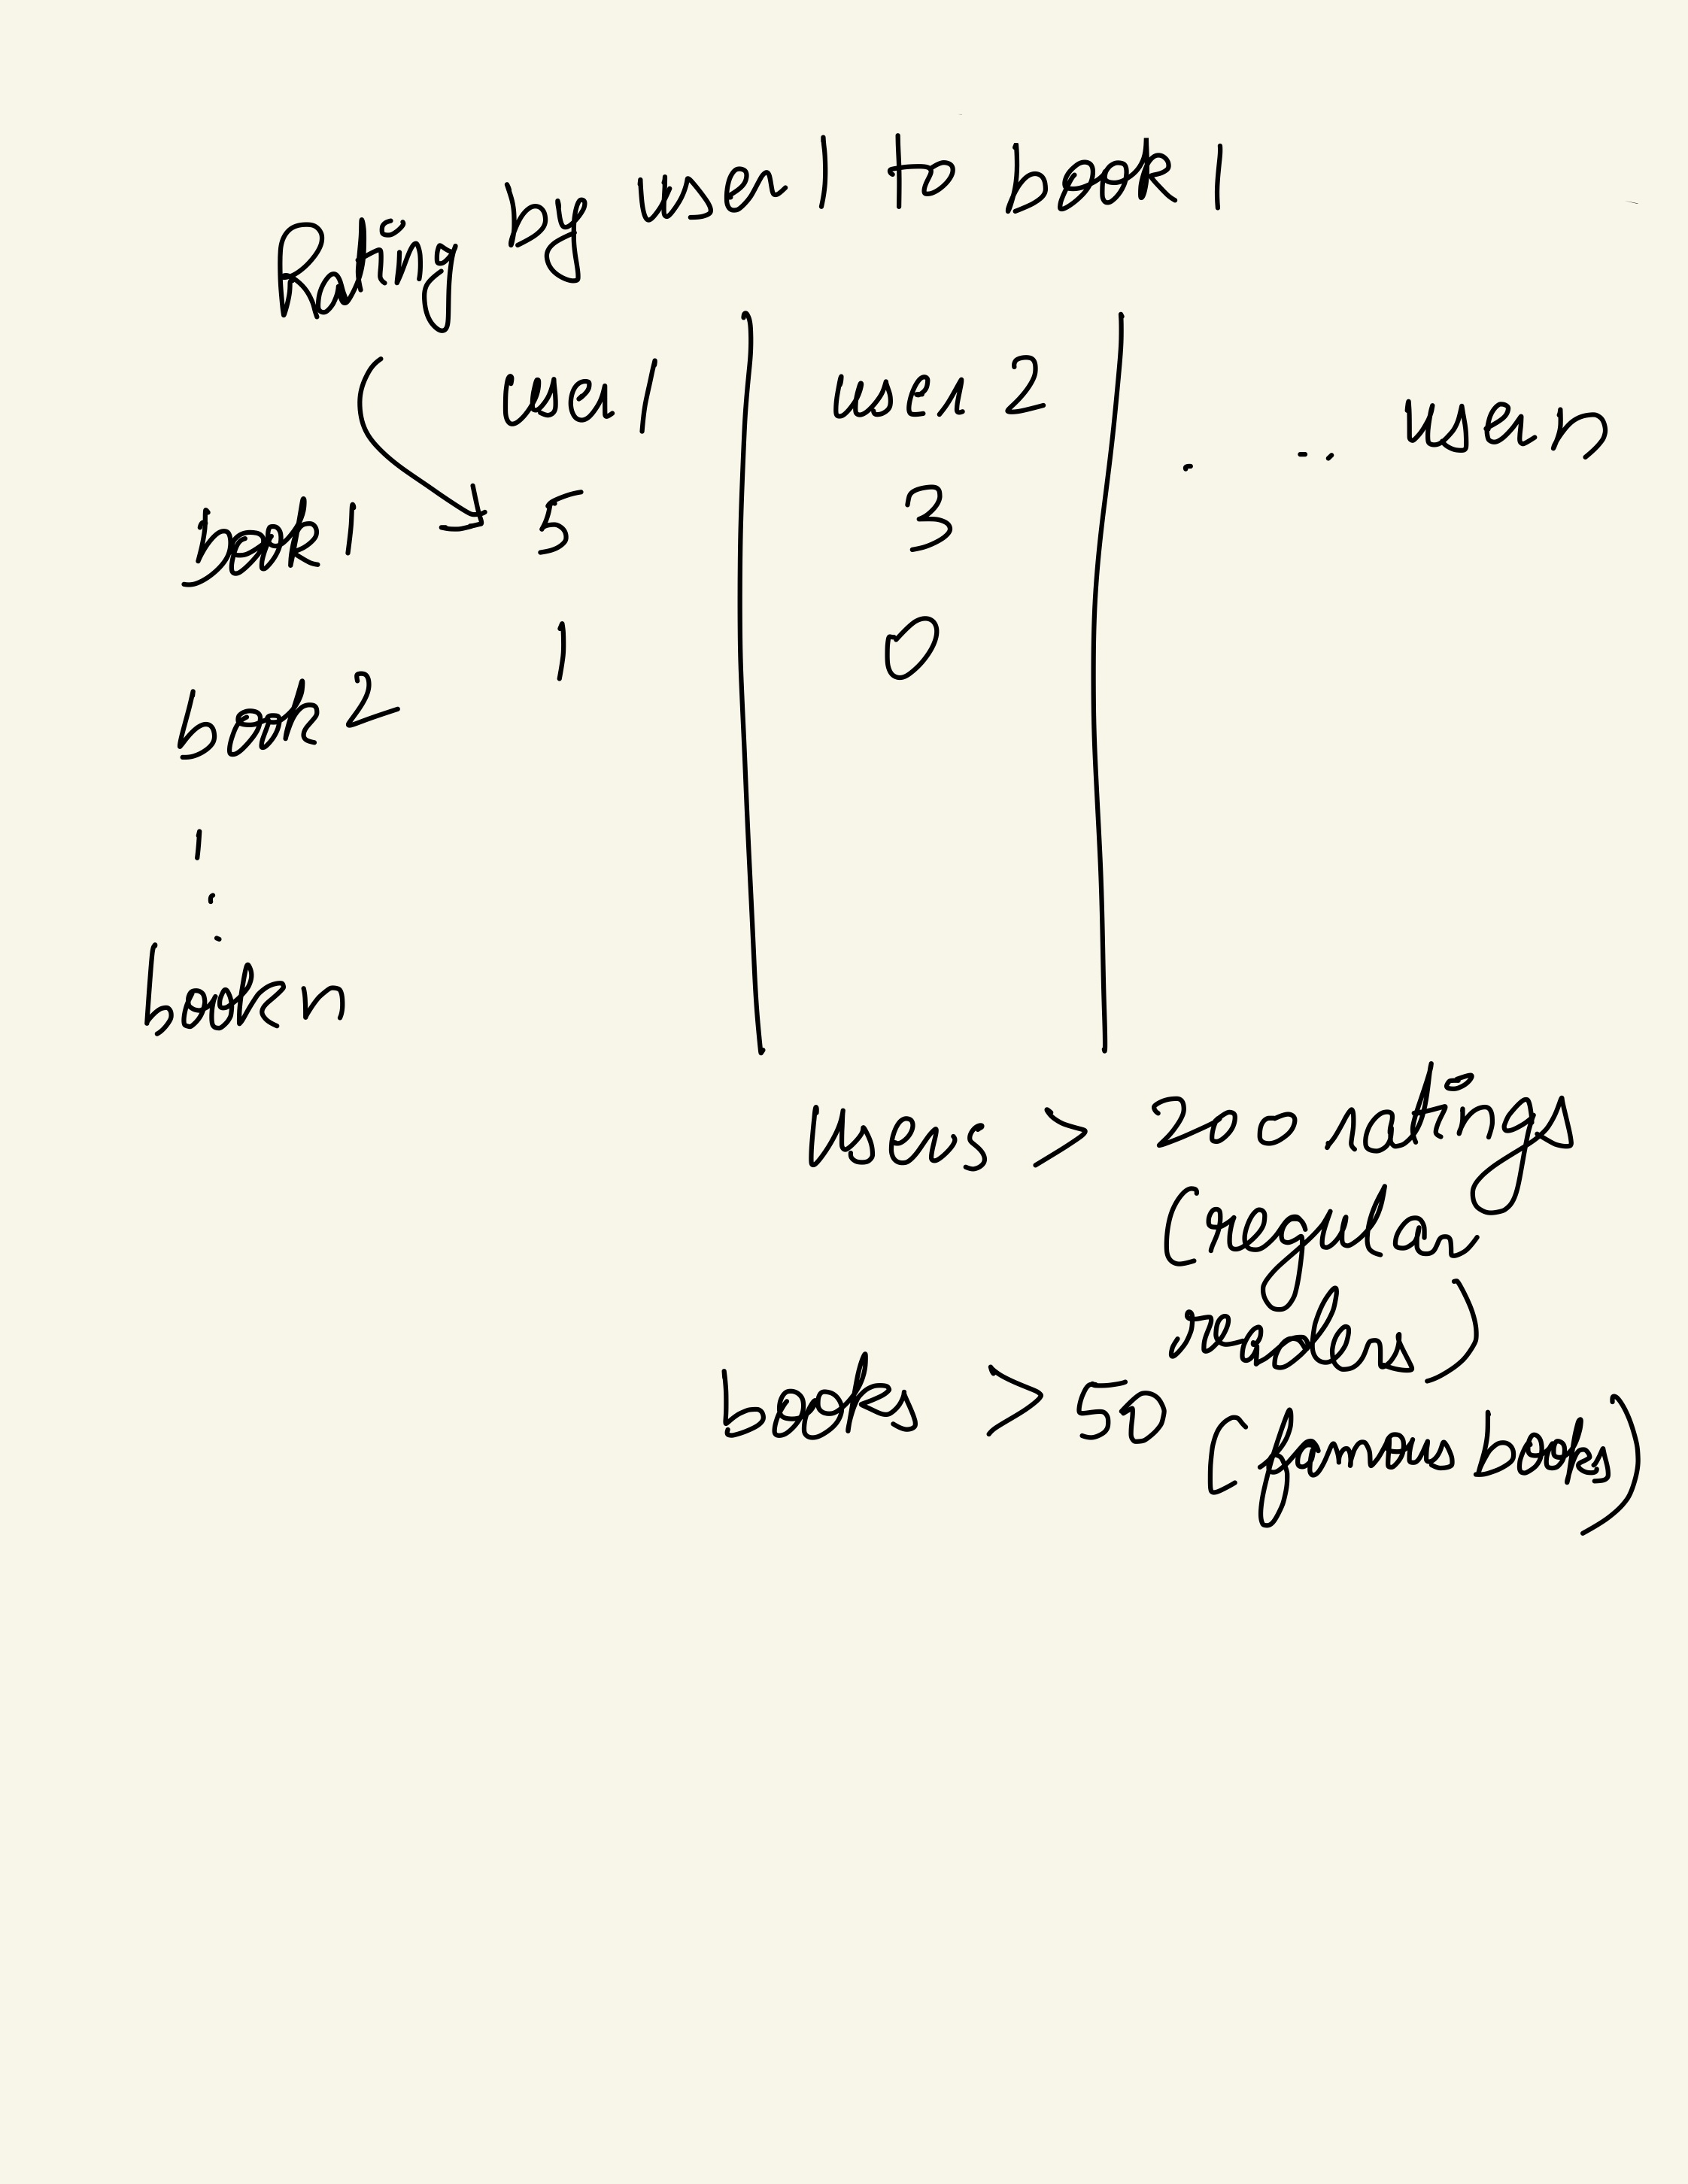 Rating by user 1 to book 1
user 1 user 2 . .. user n
book 1 5 3
1 0
book 2
book n
users > 200 ratings
(regular
readers)
books > 50
(famous books)